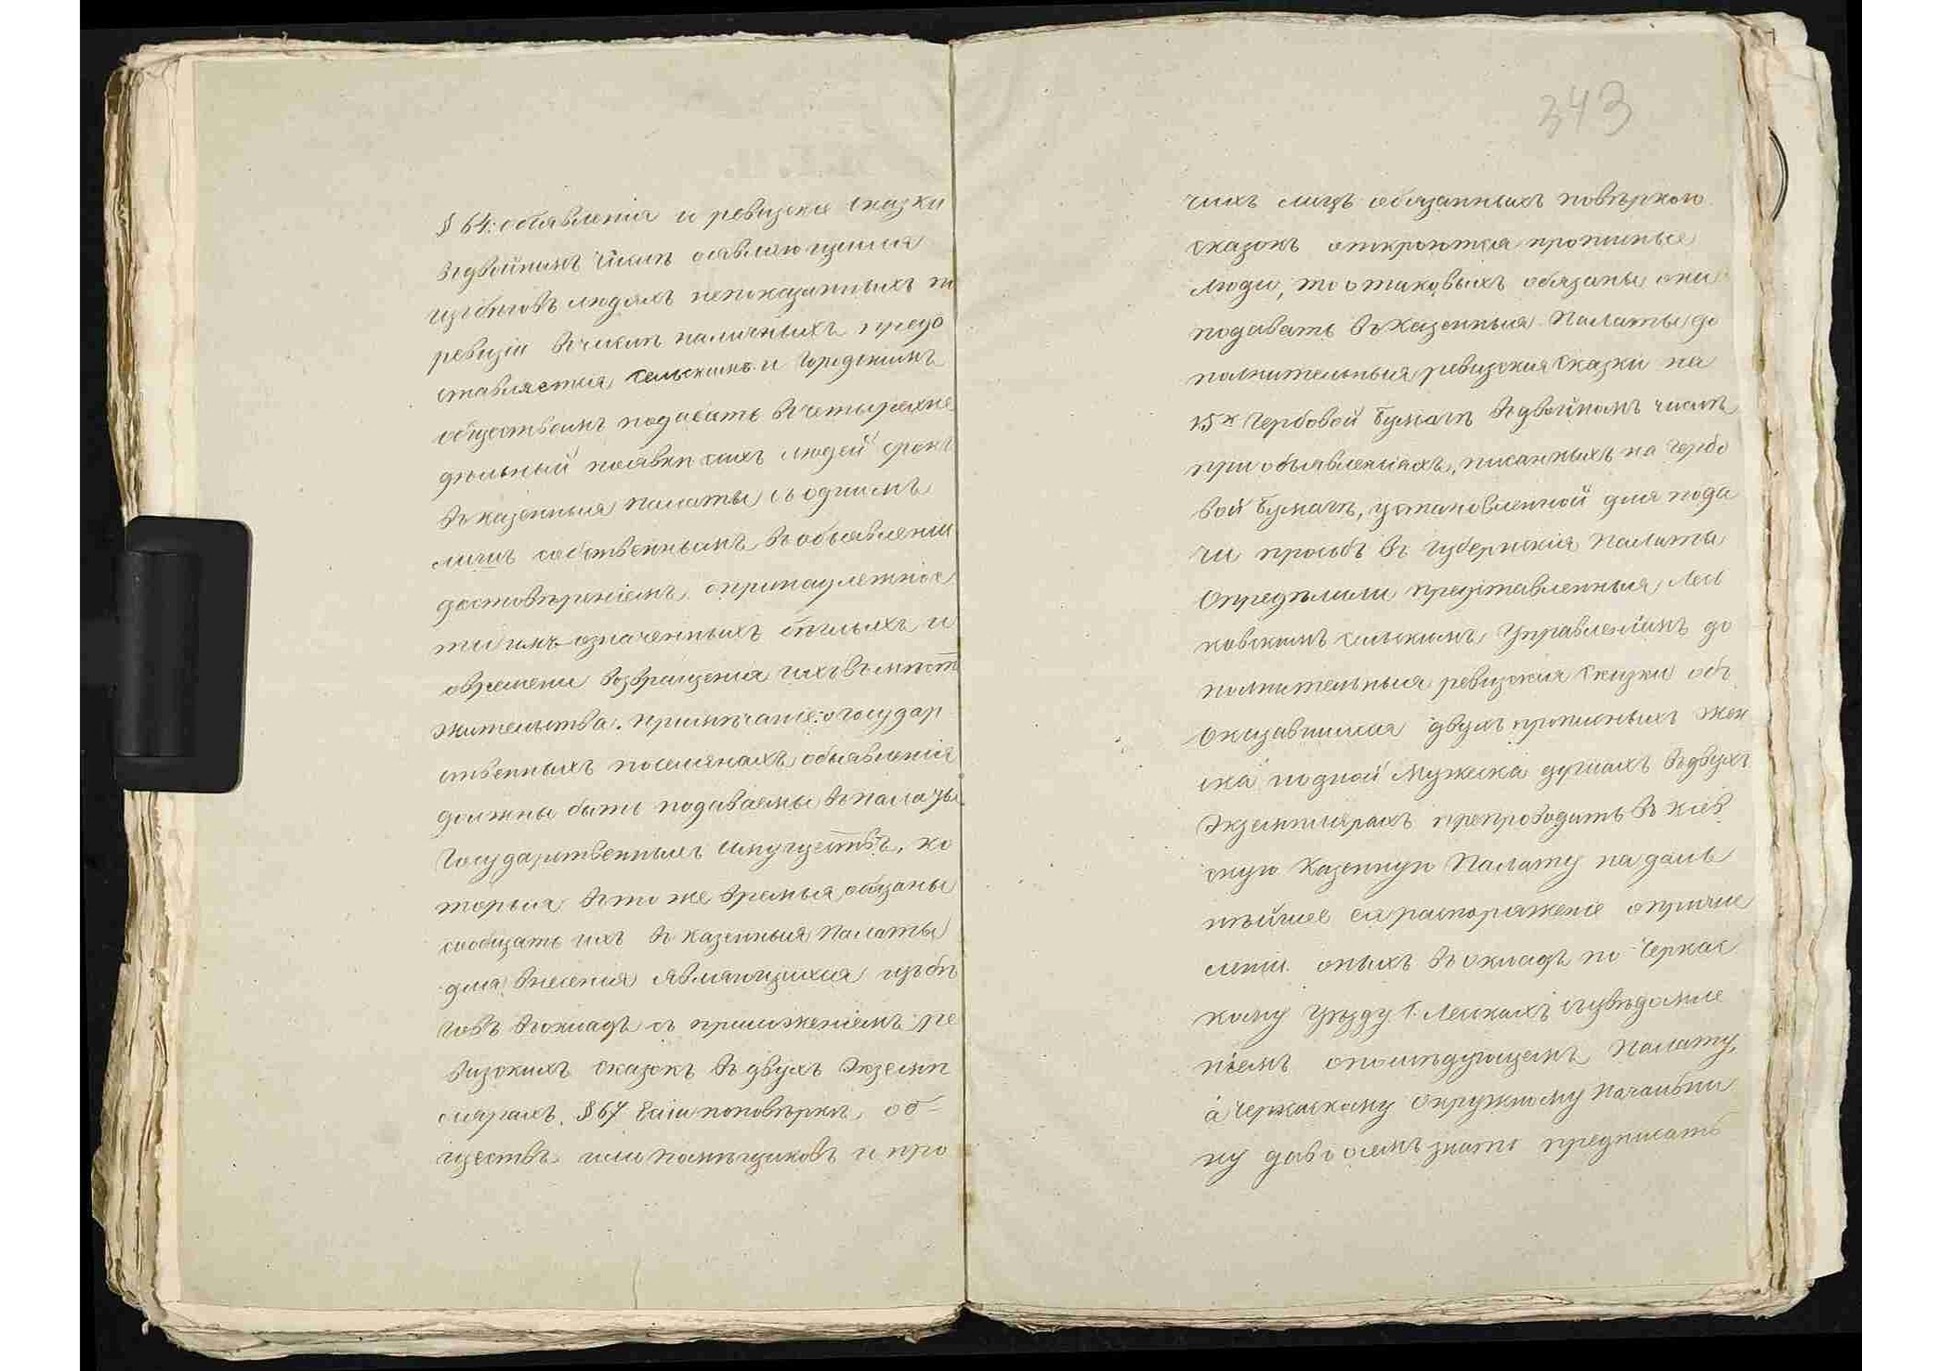 § 64: объявленія и ревизскіе сказки
въ двойномъ числѣ о являющимся
изъ бѣговъ людяхъ непоказанныхъ по
ревизіи въ числѣ наличныхъ предо
ставляется сельскимъ и городскимъ
обществамъ подавать въ четырехне
дѣльный появки сихъ людей срокъ
въ казенныя палаты съ однимъ
лишь собственнымъ въ объявленіи
достовѣреніемъ о принадлежнос
ти имъ означенныхъ бѣглыхъ и
о времени возвращенія ихъ въ мѣст
жительства. Примѣчаніе: о государ
ственныхъ поселянахъ объявленія
должны быть подаваемы въ палаты
Государственныхъ имуществъ, ко
торыя въ то же время обязаны
сообщать ихъ въ казенныя Палаты
для внесенія являющихся изъ бѣ
говъ въ окладъ съ приложеніемъ ре
визскихъ сказокъ въ двухъ экземп
лярахъ. § 67 Если по повѣркѣ об-
ществъ или помѣщиковъ и про
343
чихъ лицъ обязанныхъ повѣркою
сказокъ откроются прописные
люди, то о таковыхъ обязаны они
подавать въ Казенныя Палаты до
полнительныя ревизскія сказки на
15 к Гербовой бумагѣ въ двойномъ числѣ
при объявленіяхъ, писанныхъ на гербо
вой бумагѣ, установленной для пода
чи просьбъ въ губернскія Палаты
Опредѣлили представленныя Лес
ковскимъ сельскимъ Управленіемъ до
полнительныя ревизскія сказки объ
оказавшихся двухъ прописныхъ жен
ска и одной мужеска душахъ въ двухъ
экземплярахъ препроводить въ Кіев
скую Казенную Палату на даль
нѣйшее ея распоряженіе о причис
леніи оныхъ въ окладъ по Черкас
кому уѣзду с. Леськахъ съ увѣдомле
ніемъ о послѣдующемъ Палату,
а Черкаскому Окружному Начальни
ку давъ о семъ знать предписать